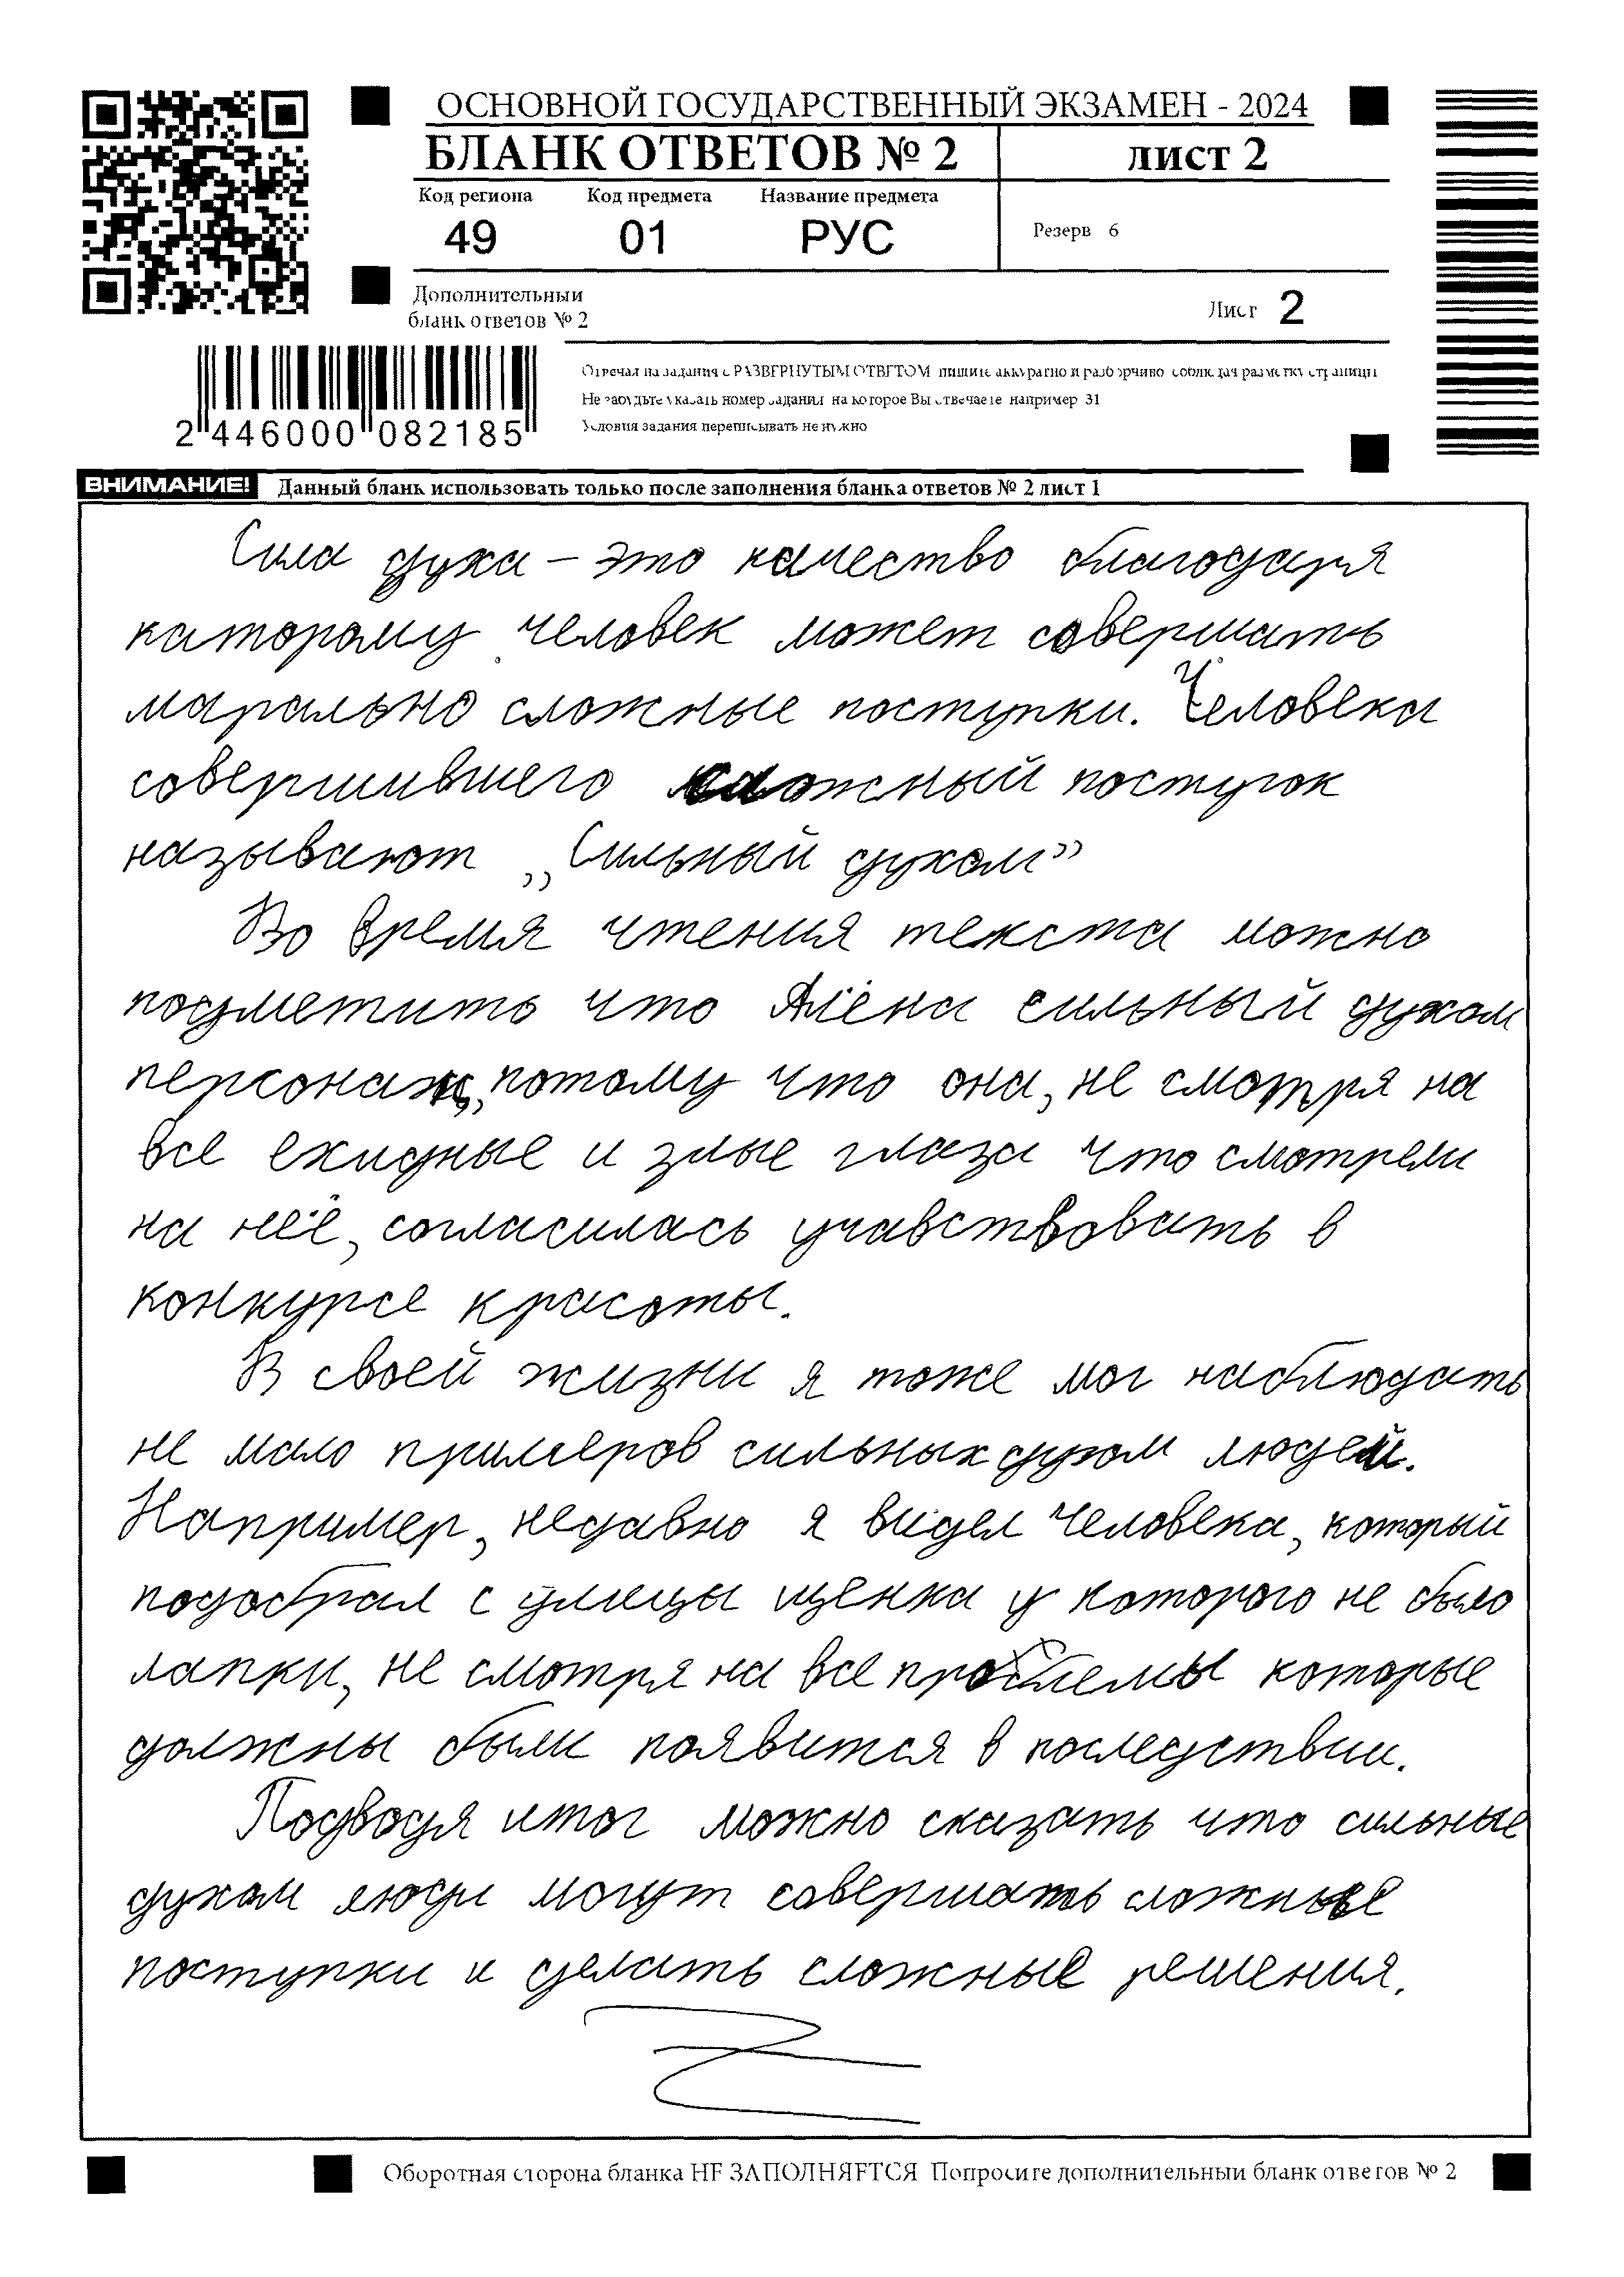 ОСНОВНОЙ ГОСУДАРСТВЕННЫЙ ЭКЗАМЕН - 2024
БЛАНК ОТВЕТОВ № 2
ЛИСТ 2
Код региона Код предмета Название предмета
49 01 РУС
Резерв 6
Дополнительный
бланк ответов № 2
Лист 2
Отвечая на задания с РАЗВЕРНУТЫМ ОТВЕТОМ, пишите аккуратно и разборчиво, соблюдая разметку страницы
Не забудьте указать номер задания, на которое Вы отвечаете, например 31
Условия задания переписывать не нужно
2 446000 082185
ВНИМАНИЕ! Данный бланк использовать только после заполнения бланка ответов № 2 лист 1
Сила духа – это качество благодаря
каторому человек может совершать
марально сложные поступки. Человека
совершившего сложный поступок
называют „Сильный духом”
Во время чтения текста можно
подметить что Алёна сильный духом
персонаж, потому что она, не смотря на
все ехидные и злые глаза что смотрели
на неё, согласилась учавствовать в
конкурсе красоты.
В своей жизни я тоже мог наблюдать
не мало примеров сильных духом людей.
Например, недавно я видел человека, который
подобрал с улицы щенка у которого не было
лапки, не смотря на все проблемы которые
должны были появится в последствии.
Подводя итог можно сказать что сильные
духом люди могут совершать сложные
поступки и делать сложные решения.
Оборотная сторона бланка НЕ ЗАПОЛНЯЕТСЯ Попросите дополнительный бланк ответов № 2